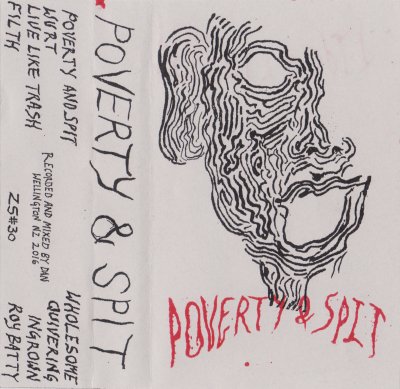 POVERTY AND SPIT
WURT
LIVE LIKE TRASH
FILTH
RECORDED AND MIXED BY DAN
WELLINGTON NZ 2016
ZS#30
WHOLESOME
QUIVERING
INGROWN
ROY BATTY
POVERTY & SPIT
POVERTY & SPIT